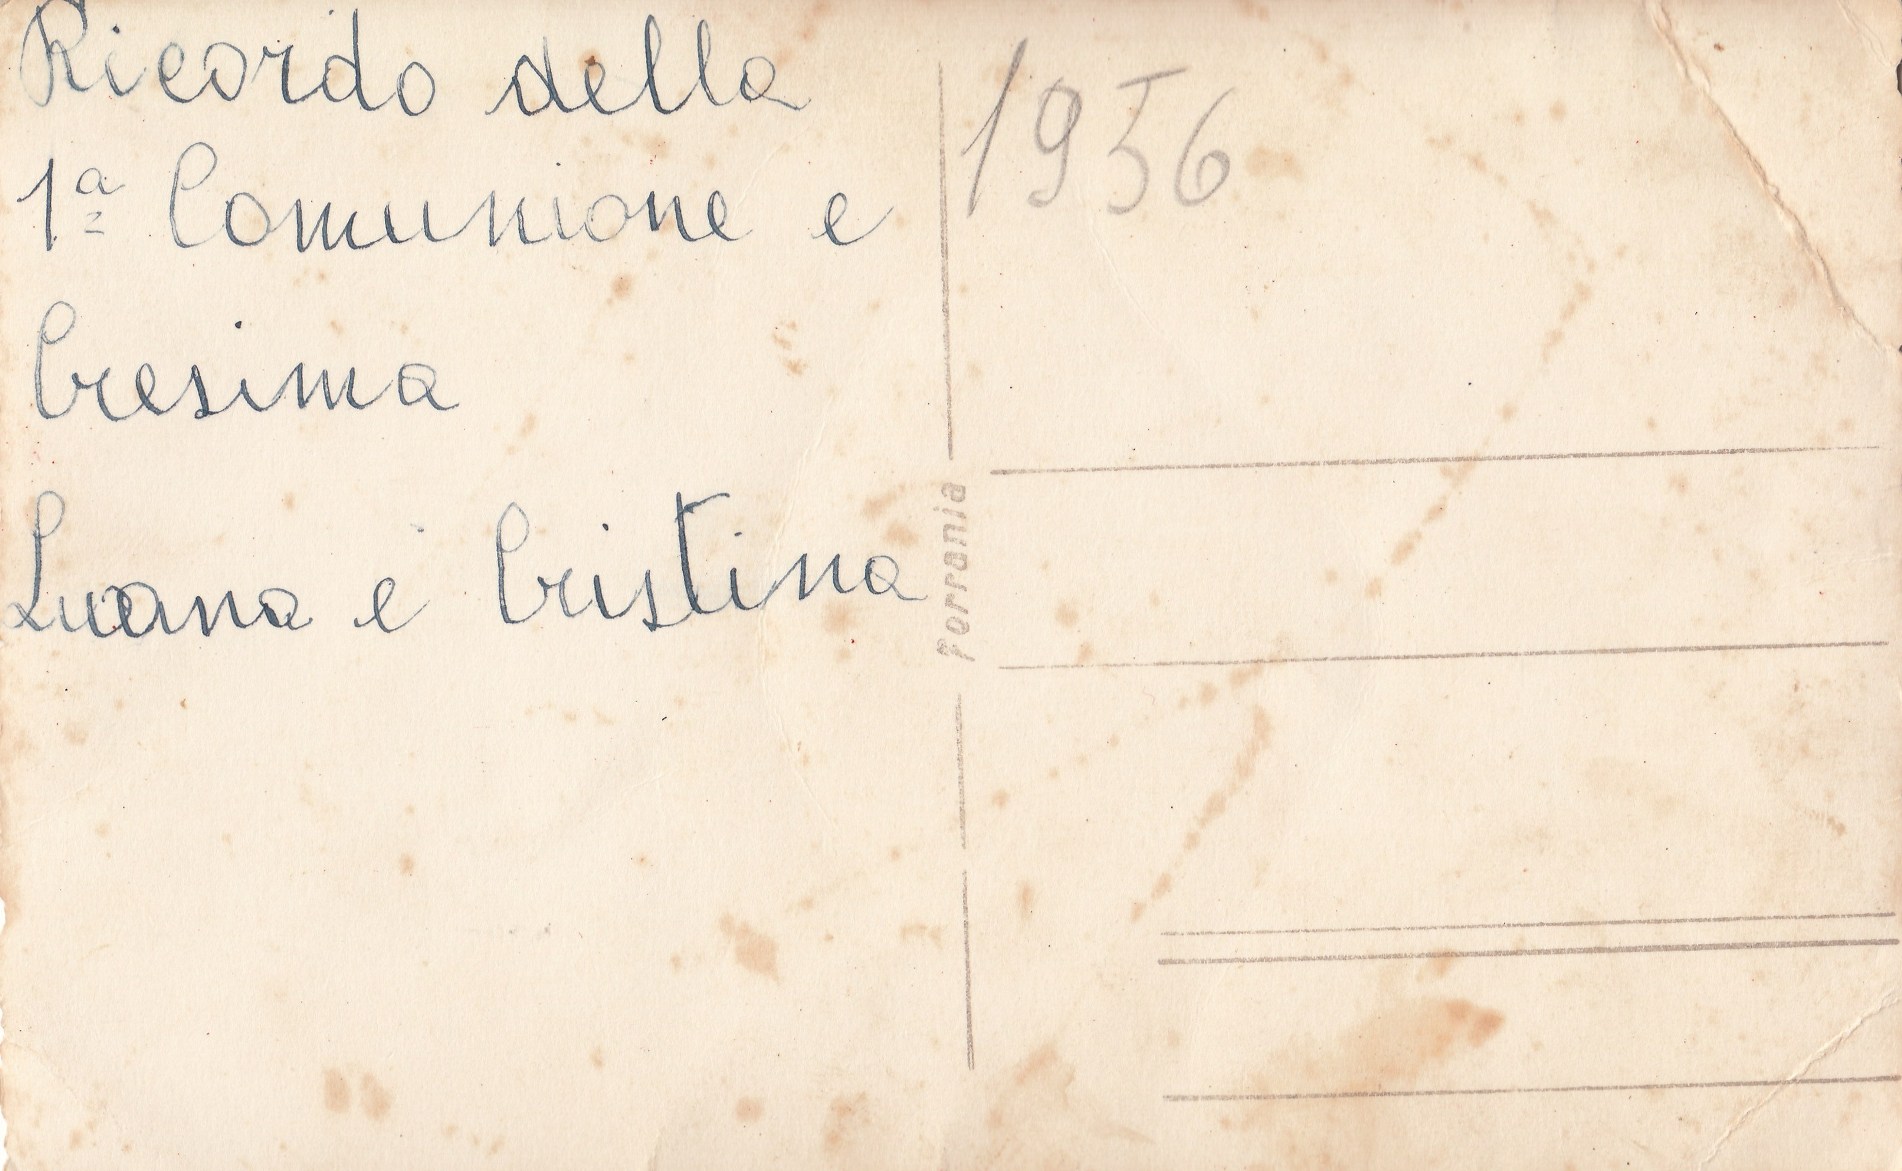 Ricordo della
1ª Comunione e
Cresima
Luana e Cristina
1956
Ferrania